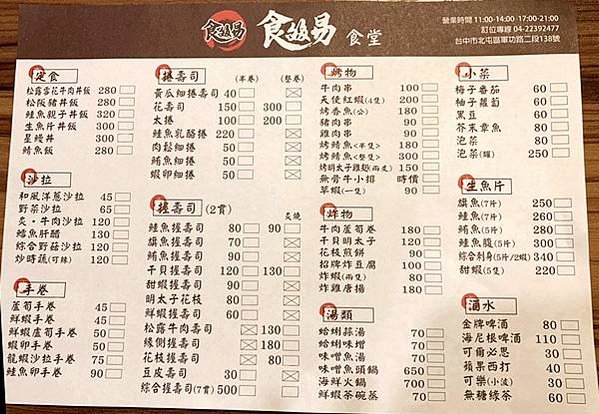 食越易 食越易 食堂
營業時間 11:00-14:00 17:00-21:00
訂位專線 04-22392477
台中市北屯區軍功路二段138號
定食
松露雪花牛肉丼飯 280
松阪豬丼飯 280
鮭魚親子丼飯 320
生魚片丼飯 300
星鰻丼 300
鯖魚飯 280
沙拉
和風洋蔥沙拉 45
野菜沙拉 65
炙·牛肉沙拉 120
鱈魚肝醋 130
綜合野菇沙拉 120
炒時蔬(可辣) 120
手卷
蘆筍手卷 45
鮮蝦手卷 50
鮮蝦蘆筍手卷 60
蝦卵手卷 50
龍蝦沙拉手卷 75
鮭魚卵手卷 90
捲壽司 (半卷) (整卷)
黃瓜細捲壽司 40
花壽司 150 300
太捲 100 200
鮭魚乳酪捲 220
肉鬆細捲 50
鮪魚細捲 50
蝦卵細捲 50
握壽司(2貫) 炙燒
鮭魚握壽司 80 90
旗魚握壽司 70
鮪魚握壽司 90
干貝握壽司 120 130
甜蝦握壽司 90
明太子花枝 80
鮮蝦握壽司 60
松露牛肉壽司 130
緣側握壽司 180
花枝握壽司 80
豆皮壽司 30
綜合握壽司(7貫) 500
烤物
牛肉串 100
天使紅蝦(4隻) 200
烤香魚(公) 180
豬肉串 90
雞肉串 90
烤鯖魚<半隻> 180
烤鯖魚<整隻> 300
烤明太子雞翅(兩支) 150
無骨牛小排 時價
草蝦(一隻) 90
炸物
牛肉蘆筍卷 180
干貝明太子 120
花枝煎餅 90
招牌炸豆腐 100
炸蝦(兩隻) 150
炸雞唐揚 180
湯類
蛤蜊蒜湯 70
蛤蜊味增 70
味增魚湯 70
味增魚頭鍋 650
海鮮火鍋 700
鮮蝦茶碗蒸 70
小菜
梅子番茄 60
柚子蘿蔔 60
黑豆 60
芥末章魚 80
泡菜 80
泡菜(罐) 250
生魚片
旗魚(7片) 250
鮭魚(5片) 260
鮪魚(5片) 280
鮭魚腹(5片) 300
綜合刺身(5片/2蝦) 340
甜蝦(5隻) 220
酒水
金牌啤酒 80
海尼根啤酒 110
可爾必思 30
蘋果西打 40
可樂(小波) 30
無糖綠茶 60